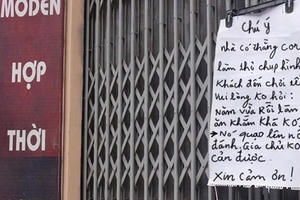 MODEN
HỢP
THỜI
Chú ý
nhà có thằng con
làm thì chụp hình
Khách đến chơi
Vui lòng ko hỏi:
Năm vừa Rồi làm
ăn khấm khá ko
Nó quạo lên nó
đánh, Gia chủ ko
cản được.
Xin cảm ơn!